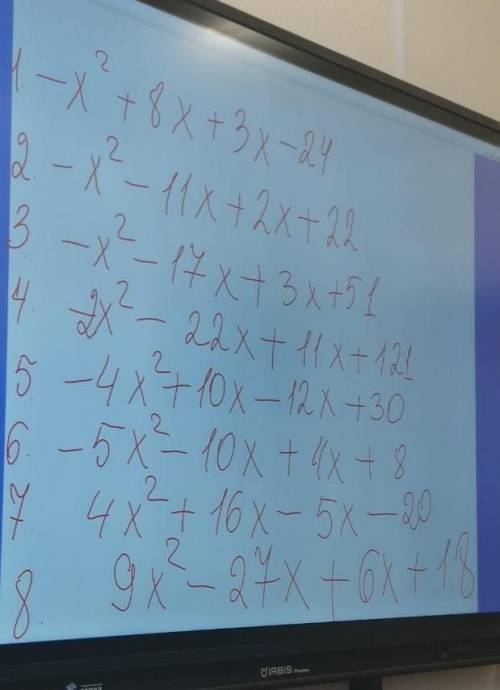 1. -x² + 8x + 3x - 24
2. -x² - 11x + 2x + 22
3 -x² - 17x + 3x + 51
4 2x² - 22x + 11x + 121
5 -4x² + 10x - 12x + 30
6. -5x² - 10x + 4x + 8
7. 4x² + 16x - 5x - 20
8 9x² - 27x + 6x + 18
IRBIS